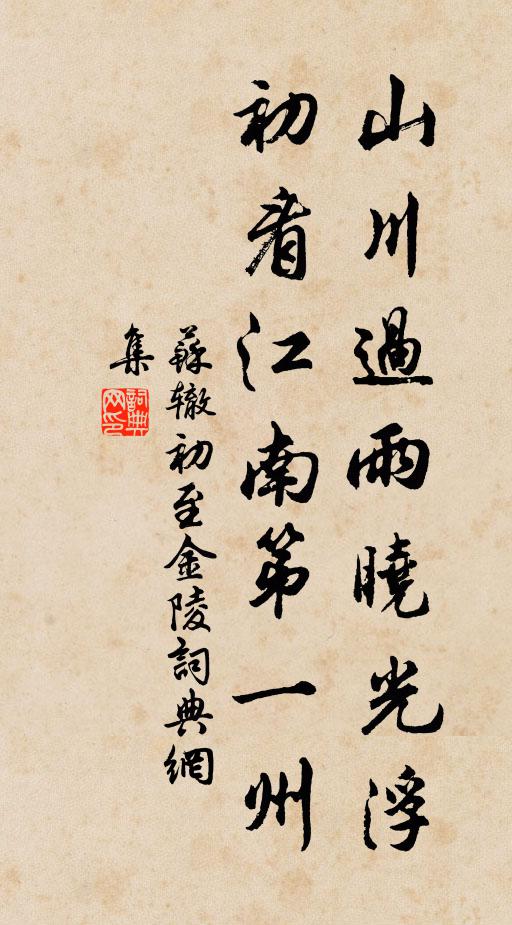 山川過雨曉光浮
初看江南第一州
蘇轍初至金陵詞典網
集
詞典
网印